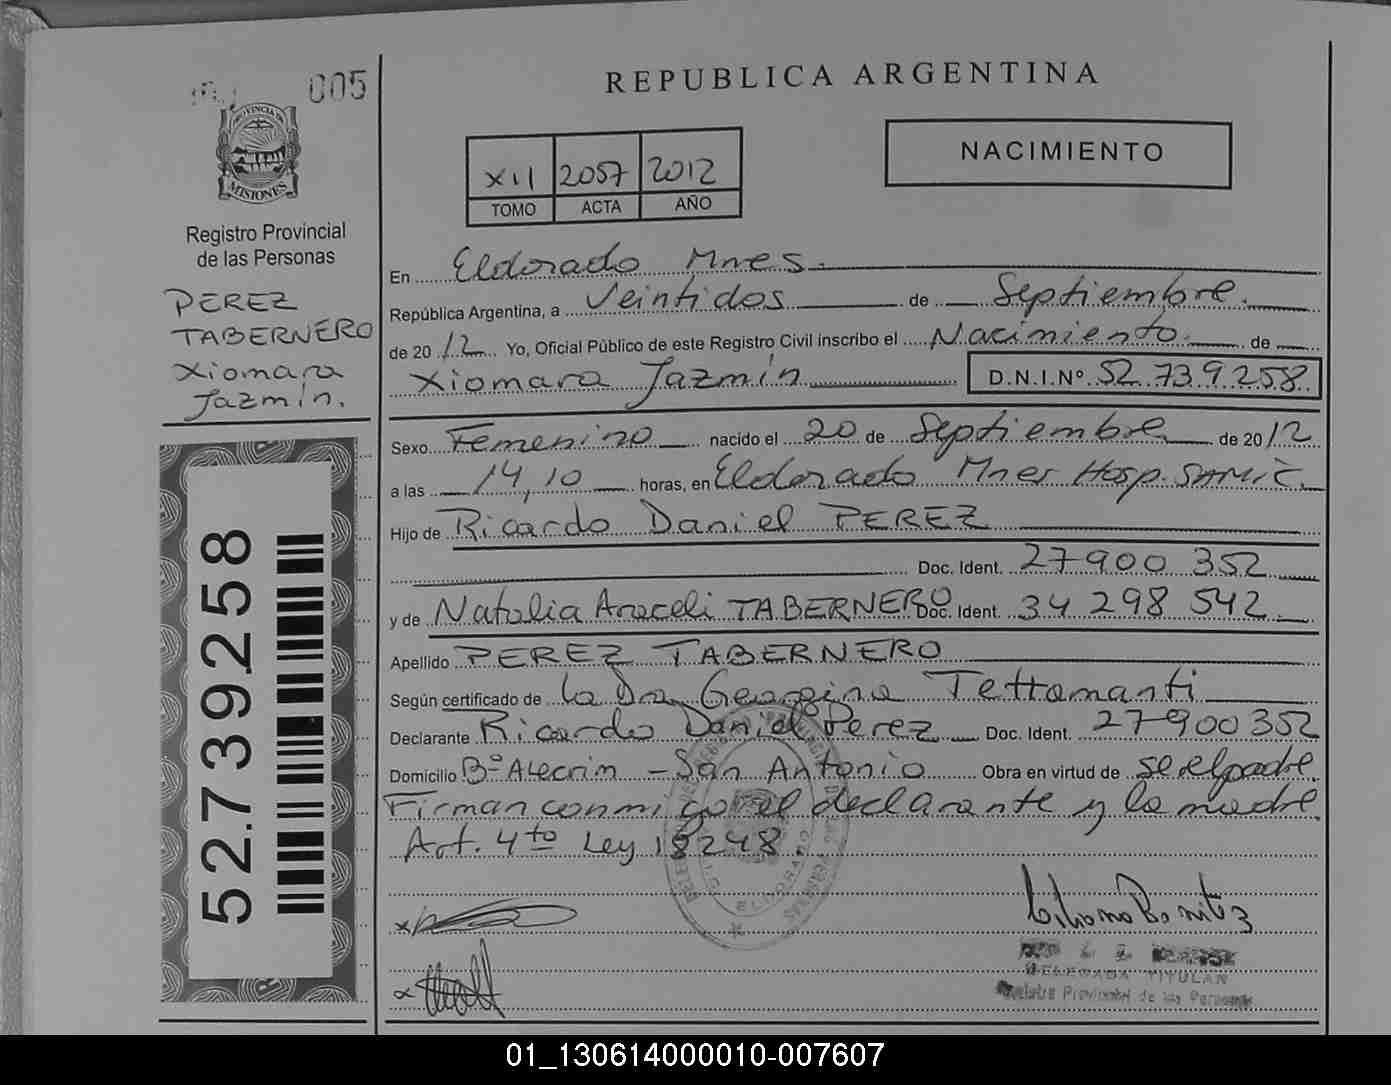 005
REPUBLICA ARGENTINA
PROVINCIA DE
MISIONES
XII 2057 2012
TOMO ACTA AÑO
NACIMIENTO
Registro Provincial
de las Personas
PEREZ
TABERNERO
Xiomara
Jazmín.
En Eldorado Mnes.
República Argentina, a Veintidos de Septiembre.
de 2012 Yo, Oficial Público de este Registro Civil inscribo el Nacimiento de
Xiomara Jazmín D.N.I.Nº 52.739.258
Sexo Femenino nacido el 20 de Septiembre de 2012
a las 14,10 horas, en Eldorado Mnes Hosp. SAMIC.
Hijo de Ricardo Daniel PEREZ
Doc. Ident. 27900 352
y de Natalia Araceli TABERNERO Doc. Ident. 34 298 542
Apellido PEREZ TABERNERO
Según certificado de la Dra Georgina Tettamanti
Declarante Ricardo Daniel Perez Doc. Ident. 27900352
Domicilio Bº Alecrin - San Antonio Obra en virtud de se el padre.
Firman conmigo el declarante y la madre
Art. 4to Ley 18248.
52.739.258
ELDORADO
Liliana Benitez
DELEGADA TITULAR
Registro Provincial de las Personas
01_130614000010-007607